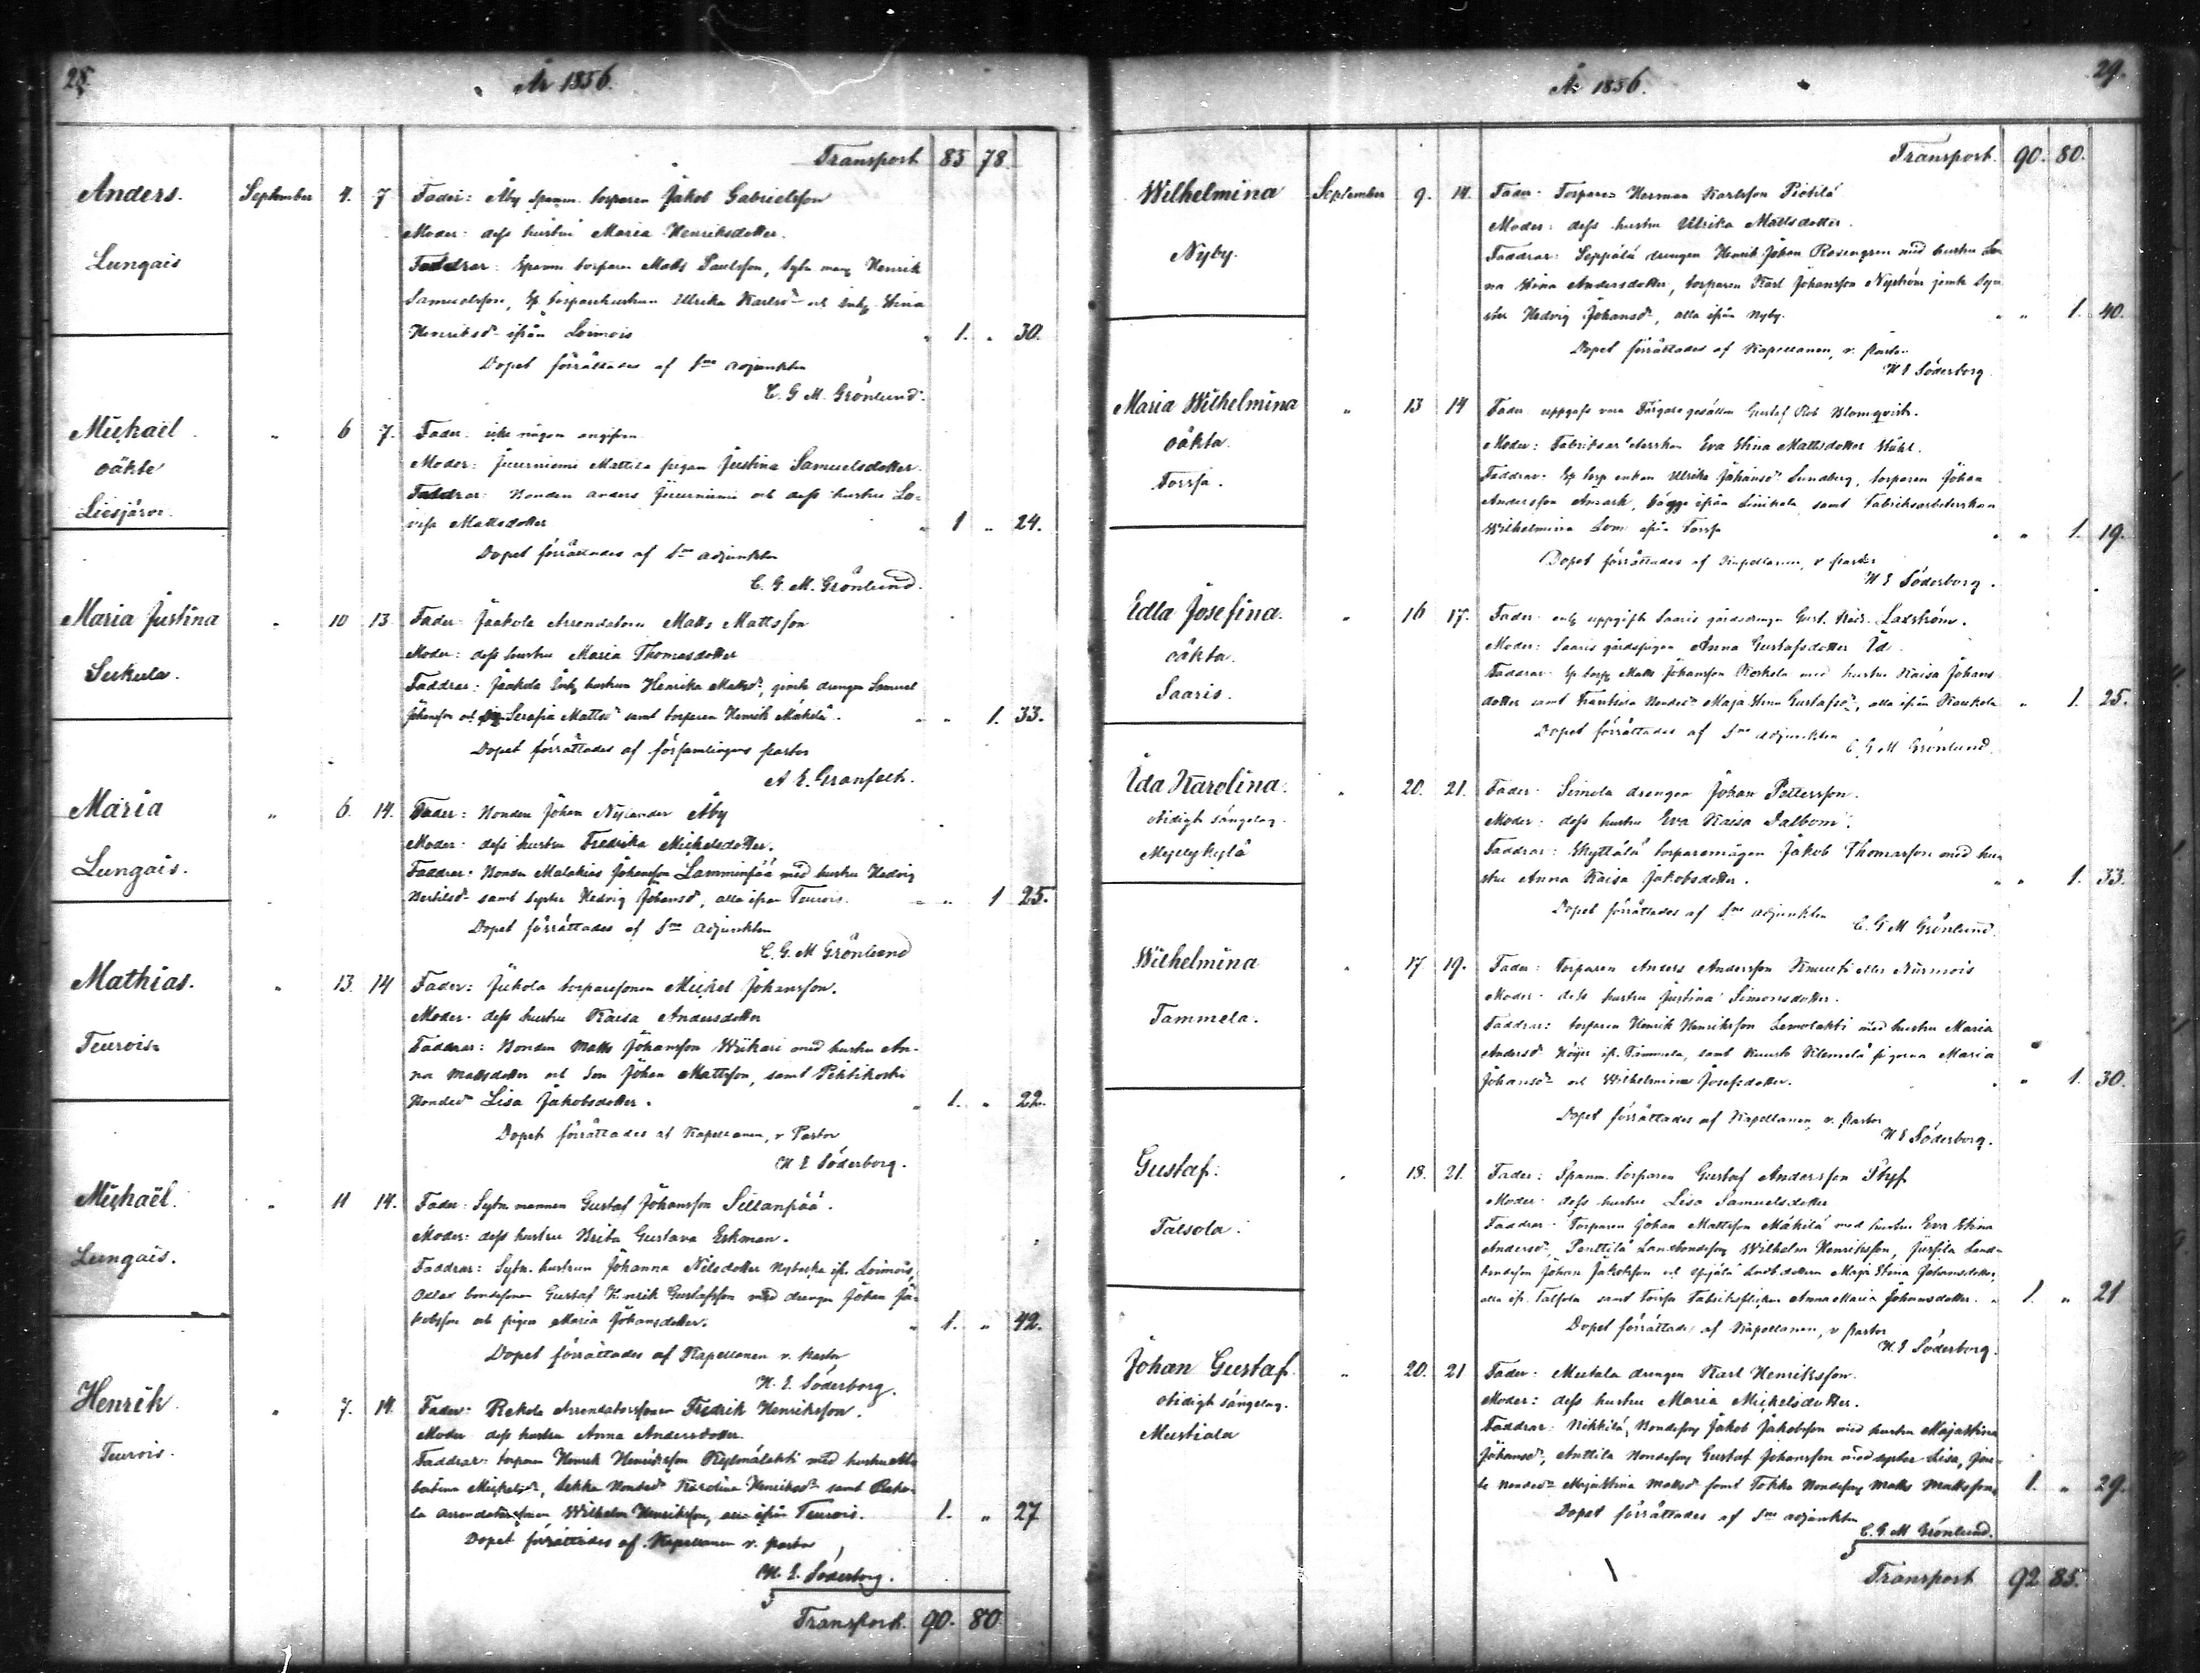 28.
År 1856.
Transport 85 78.
Anders. September 4. 7 Fader: Åby spanm. torparen Jakob Gabrielsson
Moder: dess hustru Maria Henriksdotter.
Lungais
Faddrar: Spanm torparen Matts Paulsson, Sytn. man Henrik
Samuelsson, torparehustrun Ulrika Karlsd. och Stina
Henriksd. ifrån Loimois " 1. " 30.
Dopet förrättades af S:ne Adjunkten
C. G. M. Grönlund.
Michaël " 6 7. Fader: icke någon angifven
oäkte
Moder: Juurniemi Mattila pigan Justina Samuelsdotter.
Liesjärvi.
Faddrar: Bonden Anders Juurniemi och dess hustru Lo-
visa Mattsdotter " 1 " 24.
Dopet förrättades af S:ne adjunkten
C. G. M. Grönlund.
Maria Justina " 10 13. Fader: Jaakola Arrendatorn Matts Mattsson
Moder: dess hustru Maria Thomasdotter
Sukula.
Faddrar: Jaakola hustrun Henrika Mattsd., jemte drengen Samuel
Johansson och Serafia Mattsd. samt torparen Henrik Mäkelä. " " 1. 33.
Dopet förrättades af församlingens pastor
A. E. Granfelt.
Maria " 6. 14. Fader: Bonden Johan Nylander Åby
Moder: dess hustru Fredrika Michelsdotter.
Lungais.
Faddrar: Bonden Malakias Johansson Lamminpää med hustru Hedvig
Bertilsd. samt syster Hedvig Johansd., alla ifrån Teurois. " " 1 25.
Dopet förrättades af S:ne Adjunkten
C. G. M. Grönlund
Mathias. " 13. 14 Fader: Jukola torparesonen Michel Johansson.
Moder: dess hustru Kaisa Andersdotter
Teurois.
Faddrar: Bonden Matts Johansson Wiikari med hustru An-
na Mattsdotter och Son Johan Mattsson, samt Pihtikoski
Bonded. Lisa Jakobsdotter. " 1. " 22.
Dopet förrättades af Kapellanen, v. Pastor
H. E. Söderborg.
Michaël. " 11 14. Fader: Sytn. mannen Gustaf Johansson Sillanpää.
Moder: dess hustru Brita Gustava Eskman.
Lungais.
Faddrar: Sytn. hustrun Johanna Nilsdotter Nybacka if. Loimois,
bondesonen Gustaf Henrik Gustafsson med drengen Johan Ja-
kobsson och pigan Maria Johansdotter. " 1. " 42.
Dopet förrättades af Kapellanen v. Pastor
H. E. Söderborg.
Henrik " 7. 14. Fader: Rekola Arrendatorssonen Fredrik Henriksson.
Moder: dess hustru Anna Andersdotter.
Teurois.
Faddrar: torparen Henrik Henriksson Kylmälahti med hustru Al-
bertina Michelsd., Bonded. Karolina Henriksd. samt Reko-
la arrendatorssonen Wilhelm Henriksson, alla ifrån Teurois. 1. " 27
Dopet förrättades af Kapellanen v. pastor
H. E. Söderborg.
Transport. 90. 80
29.
År 1856.
Transport. 90. 80.
Wilhelmina September 9. 14. Fader: Torparen Herman Karlsson Pietilä
Moder: dess hustru Ulrika Mattsdotter.
Nyby.
Faddrar: Seppälä drengen Henrik Johan Rosengren med hustru Le-
na Stina Andersdotter, torparen Karl Johansson Nyström jemte Sys-
ter Hedvig Johansd., alla ifrån Nyby. " " 1. 40.
Dopet förrättades af Kapellanen, v. Pastor
H E Söderborg.
Maria Wilhelmina " 13 14 Fader: uppgifs vara Färgare gesällen Gustaf Rob Blomqvist.
oäkta.
Moder: Fabriksarbeterskan Eva Stina Mattsdotter Ståhl.
Forssa.
Faddrar: enkan Ulrika Johansd. Lundberg, torparen Johan
Andersson Amark, bägge ifrån Linikala, samt Fabriksarbeterskan
Wilhelmina ifrån Forssa " " 1. 19.
Dopet förrättades af Kapellanen, v. Pastor
H E Söderborg.
Edla Josefina. " 16 17. Fader: enl. uppgift Saaris gårdsdrengen Gust. Laxström.
oäkta.
Moder: Saaris gårdspigan Anna Gustafsdotter Id
Saaris.
Faddrar: Matts Johansson Koskela med hustru Kaisa Johans-
dotter samt Frantsila Bonded. Maja Stina Gustafsd., alla ifrån Kaukola " 1. 25.
Dopet förrättades af S:ne adjunkten
C. G. M Grönlund.
Ida Karolina. " 20. 21. Fader: Simola drengen Johan Pettersson.
otidigt sängelag.
Moder: dess hustru Eva Kaisa Dalbom.
Myllykylä
Faddrar: Skyttälä torparemågen Jakob Thomasson med hu-
stru Anna Kaisa Jakobsdotter. " " 1. 33.
Dopet förrättades af S:ne adjunkten
C. G M Grönlund.
Wilhelmina " 17 19. Fader: Torparen Anders Andersson Knuuti eller Nurmois
Moder: dess hustru Justina Simonsdotter.
Tammela.
Faddrar: torparen Henrik Henriksson Lemolahti med hustru Maria
Andersd. Höijer if. Tammela, samt Klemelä pigorna Maria
Johansd. och Wilhelmina Josefsdotter. " " 1. 30.
Dopet förrättades af Kapellanen, v. Pastor
H E Söderborg.
Gustaf. " 18. 21. Fader: Spanm. torparen Gustaf Andersson Styf
Moder: dess hustru Lisa Samuelsdotter
Talsola.
Faddrar: Torparen Johan Mattsson Mäkilä med hustru Eva Stina
Andersd., Penttilä Landbondeson Wilhelm Henriksson, Jussila Land-
bondeson Johan Jakobsson och dottern Maja Stina Johansdotter,
alla if. Talsola samt Forssa Fabriksflickan Anna Maria Johansdotter. " 1. " 21
Dopet förrättades af Kapellanen, v Pastor
H. E Söderborg.
Johan Gustaf. " 20. 21 Fader: Mustiala drengen Karl Henriksson.
otidigt sängelag.
Moder: dess hustru Maria Michelsdotter.
Mustiala
Faddrar: Nikkilä, Bondeson Jakob Jakobsson med hustru Maja Stina
Johansd., Anttila Bondeson Gustaf Johansson med syster Lisa,
Bonded. Maja Stina Mattsd. samt Tokka Bondeson Matts Mattsson. 1. " 29.
Dopet förrättades af S:ne adjunkten
C. G. M Grönlund.
Transport 92 85.